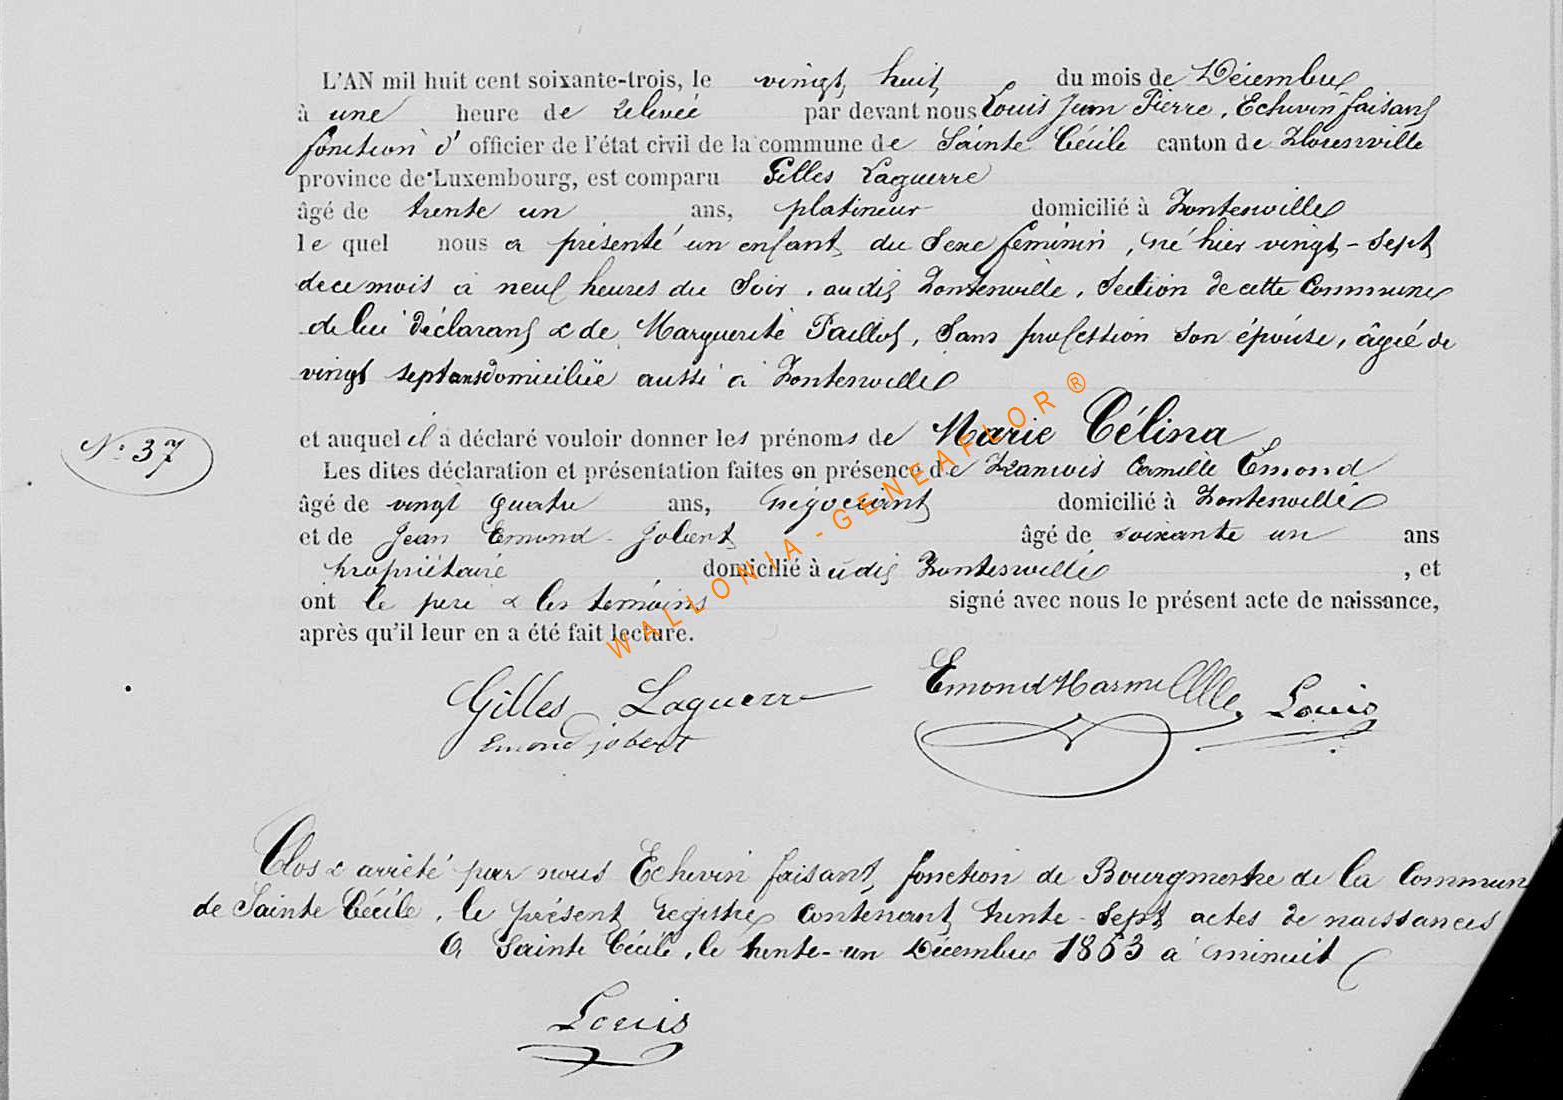 L'AN mil huit cent soixante-trois, le vingt huit du mois de Décembre
à une heure de relevée par devant nous Louis Jean Pierre, Echevin faisant
fonction d' officier de l'état civil de la commune de Sainte Cécile canton de Florenville
province de Luxembourg, est comparu Gilles Laguerre
âgé de trente un ans, platineur domicilié à Fontenoille
le quel nous a présenté un enfant du Sexe féminin, né hier vingt-sept
de ce mois à neuf heures du Soir, audit Fontenoille, Section de cette Commune
de lui déclarant & de Marguerite Paillot, Sans profession son épouse, âgée de
vingt sept ans domiciliée aussi à Fontenoille
et auquel il a déclaré vouloir donner les prénoms de Marie Célina
N° 37
Les dites déclaration et présentation faites en présence de Camille Emond
âgé de vingt quatre ans, négociant domicilié à Fontenoille
et de Jean Emond-Jobert âgé de soixante un ans
propriétaire domicilié à udit Fontenoille, et
ont le père & les témoins signé avec nous le présent acte de naissance,
après qu'il leur en a été fait lecture.
WALLONIA-GENEAFLOR®
Gilles Laguerre Emond Louis
Emond jobert
Clos & arrêté par nous Echevin faisant fonction de Bourgmestre de la Commun
de Sainte Cécile, le présent registre contenant trente-sept actes de naissances
A Sainte Cécile, le trente-un Décembre 1863 à minuit
Louis